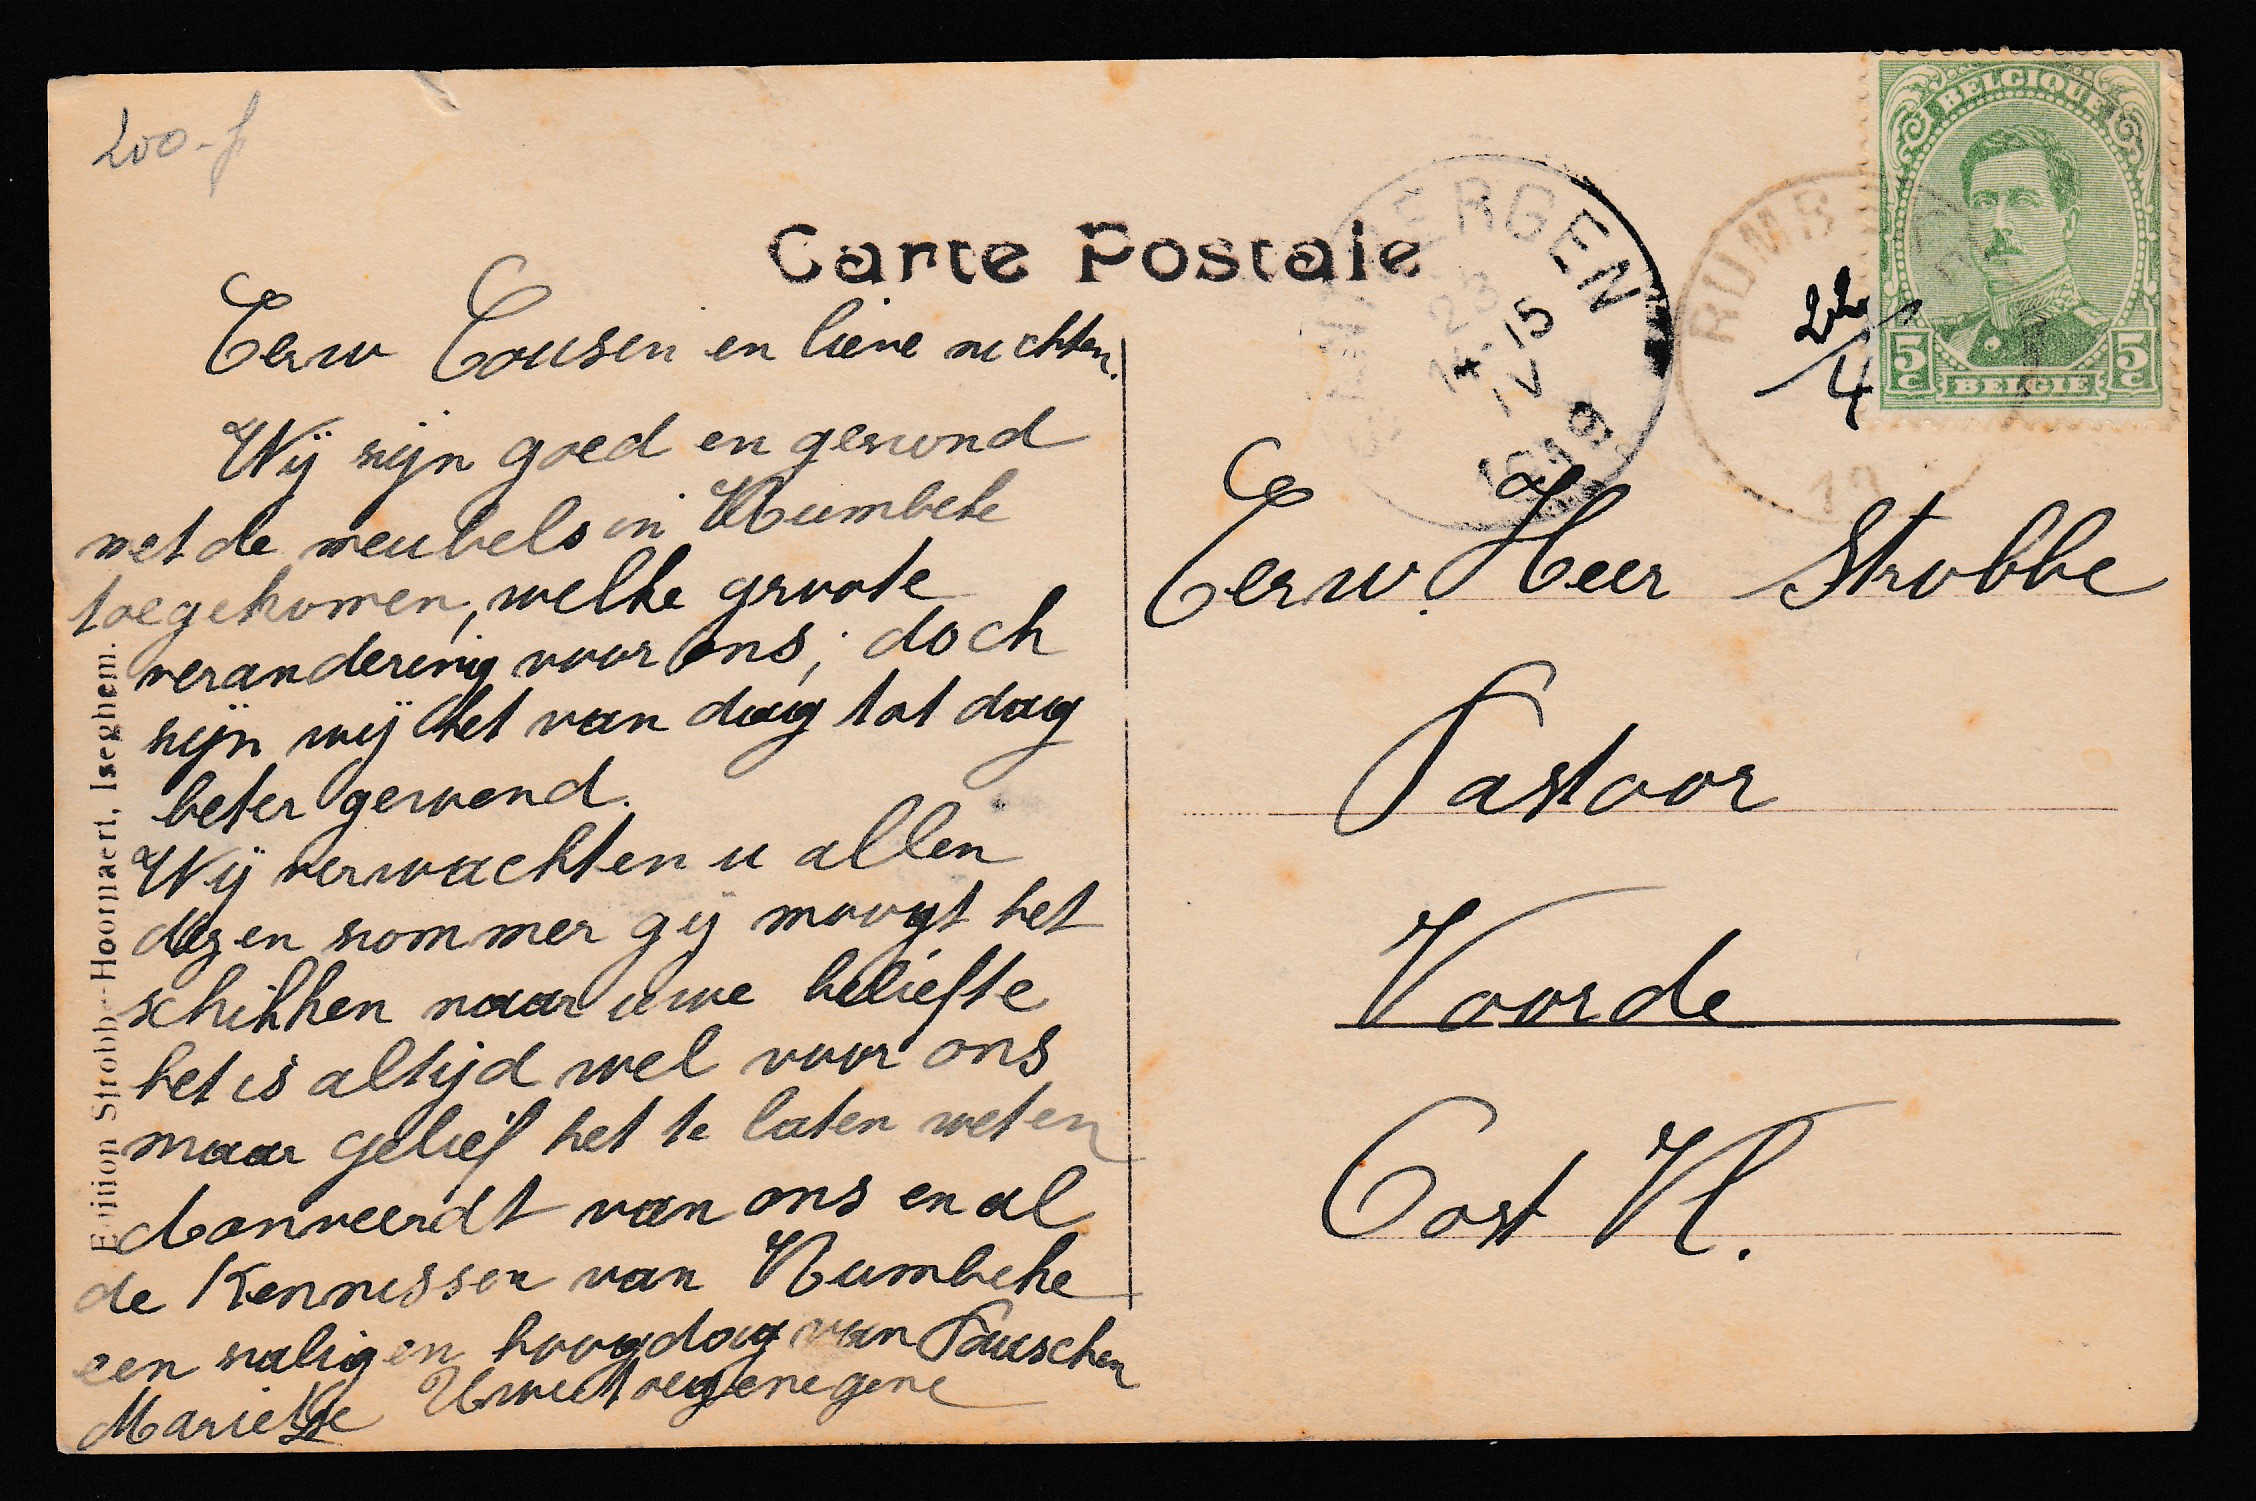 200-f
Carte Postale
BELGIQUE
5c
5c
BELGIE
BERGEN
23
14-15
IV
1919
RUMB
19
22/4
Eerw Cousen en lieve nichten.
Wij zijn goed en gezond
met de meubels in Rumbeke
toegekomen, welke groote
verandering voor ons; doch
zijn wij het van dag tot dag
beter gewend.
Wij verwachten u allen
dezen zommer gij moogt het
schikken naar uwe beliefte
het is altijd wel voor ons
maar gelief het te laten weten
Aanveerdt van ons en al
de Kennissen van Rumbeke
een zaligen hoogdag van Pauschen
Uwe toegenegene
Marietje
Eerw. Heer Strobbe
Pastoor
Voorde
Oost Vl.
Edition Strobbe-Hoornaert, Iseghem.